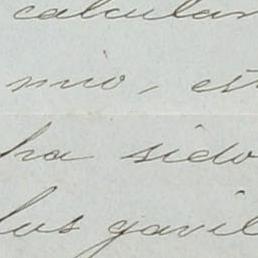 calcular
mio, es
ha sido
los gavil